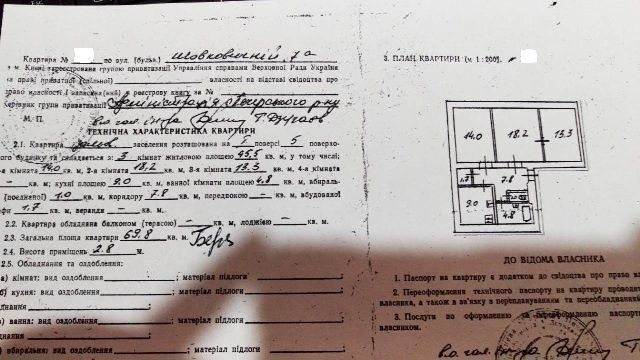 Квартира № по вул. (бульв.) Шовковичній, 7а
м. Києві зареєстрована групою приватизації Управління справами Верховної Ради України
на праві приватної (спільної) власності на підставі свідоцтва про
право власності і записана(ий) в реєстрову книгу за №
Керівник групи приватизації
М. П.
ТЕХНІЧНА ХАРАКТЕРИСТИКА КВАРТИРИ
2.1. Квартира заселення розташована на 1 поверсі 5 поверхо-
вого будинку та складається з: 3 кімнат житловою площею 45,5 кв. м, у тому числі;
1-а кімната 14.0 кв. м, 2-а кімната 18.2 кв. м, 3-я кімната 13.3 кв. м, 4-а кімната
— кв. м; кухні площею 9.0 кв. м, ванної кімнати площею 4.8 кв. м, вбираль-
(поєднаної) 1.0 кв. м, коридору 7.8 кв. м, передпокою — кв. м, вбудованої
шафи 1.7 кв. м, веранди — кв. м.
2.2. Квартира обладнана балконом (терасою) — кв. м, лоджією — кв. м.
2.3. Загальна площа квартири 69.8 кв. м.
2.4. Висота приміщень 2.8 м.
2.5. Обладнання та оздоблення:
а) кімнат: вид оздоблення ; матеріал підлоги
б) кухня: вид оздоблення ; матеріал підлоги
обладнання
в) ванна: вид оздоблення ; матеріал підлоги
обладнання
г) вбиральня: вид оздоблення ; матеріал підлоги
3. ПЛАН КВАРТИРИ (м 1 : 200).
14.0 18.2 13.3
1.7 7.8
9.0 4.8
ДО ВІДОМА ВЛАСНИКА
1. Паспорт на квартиру є додатком до свідоцтва про право
2. Переоформлення технічного паспорта на квартиру проводит
власника, а також в зв'язку з переплануванням та переобладнанням
3. Послуги по оформленню та переоформленню паспорт
власником.